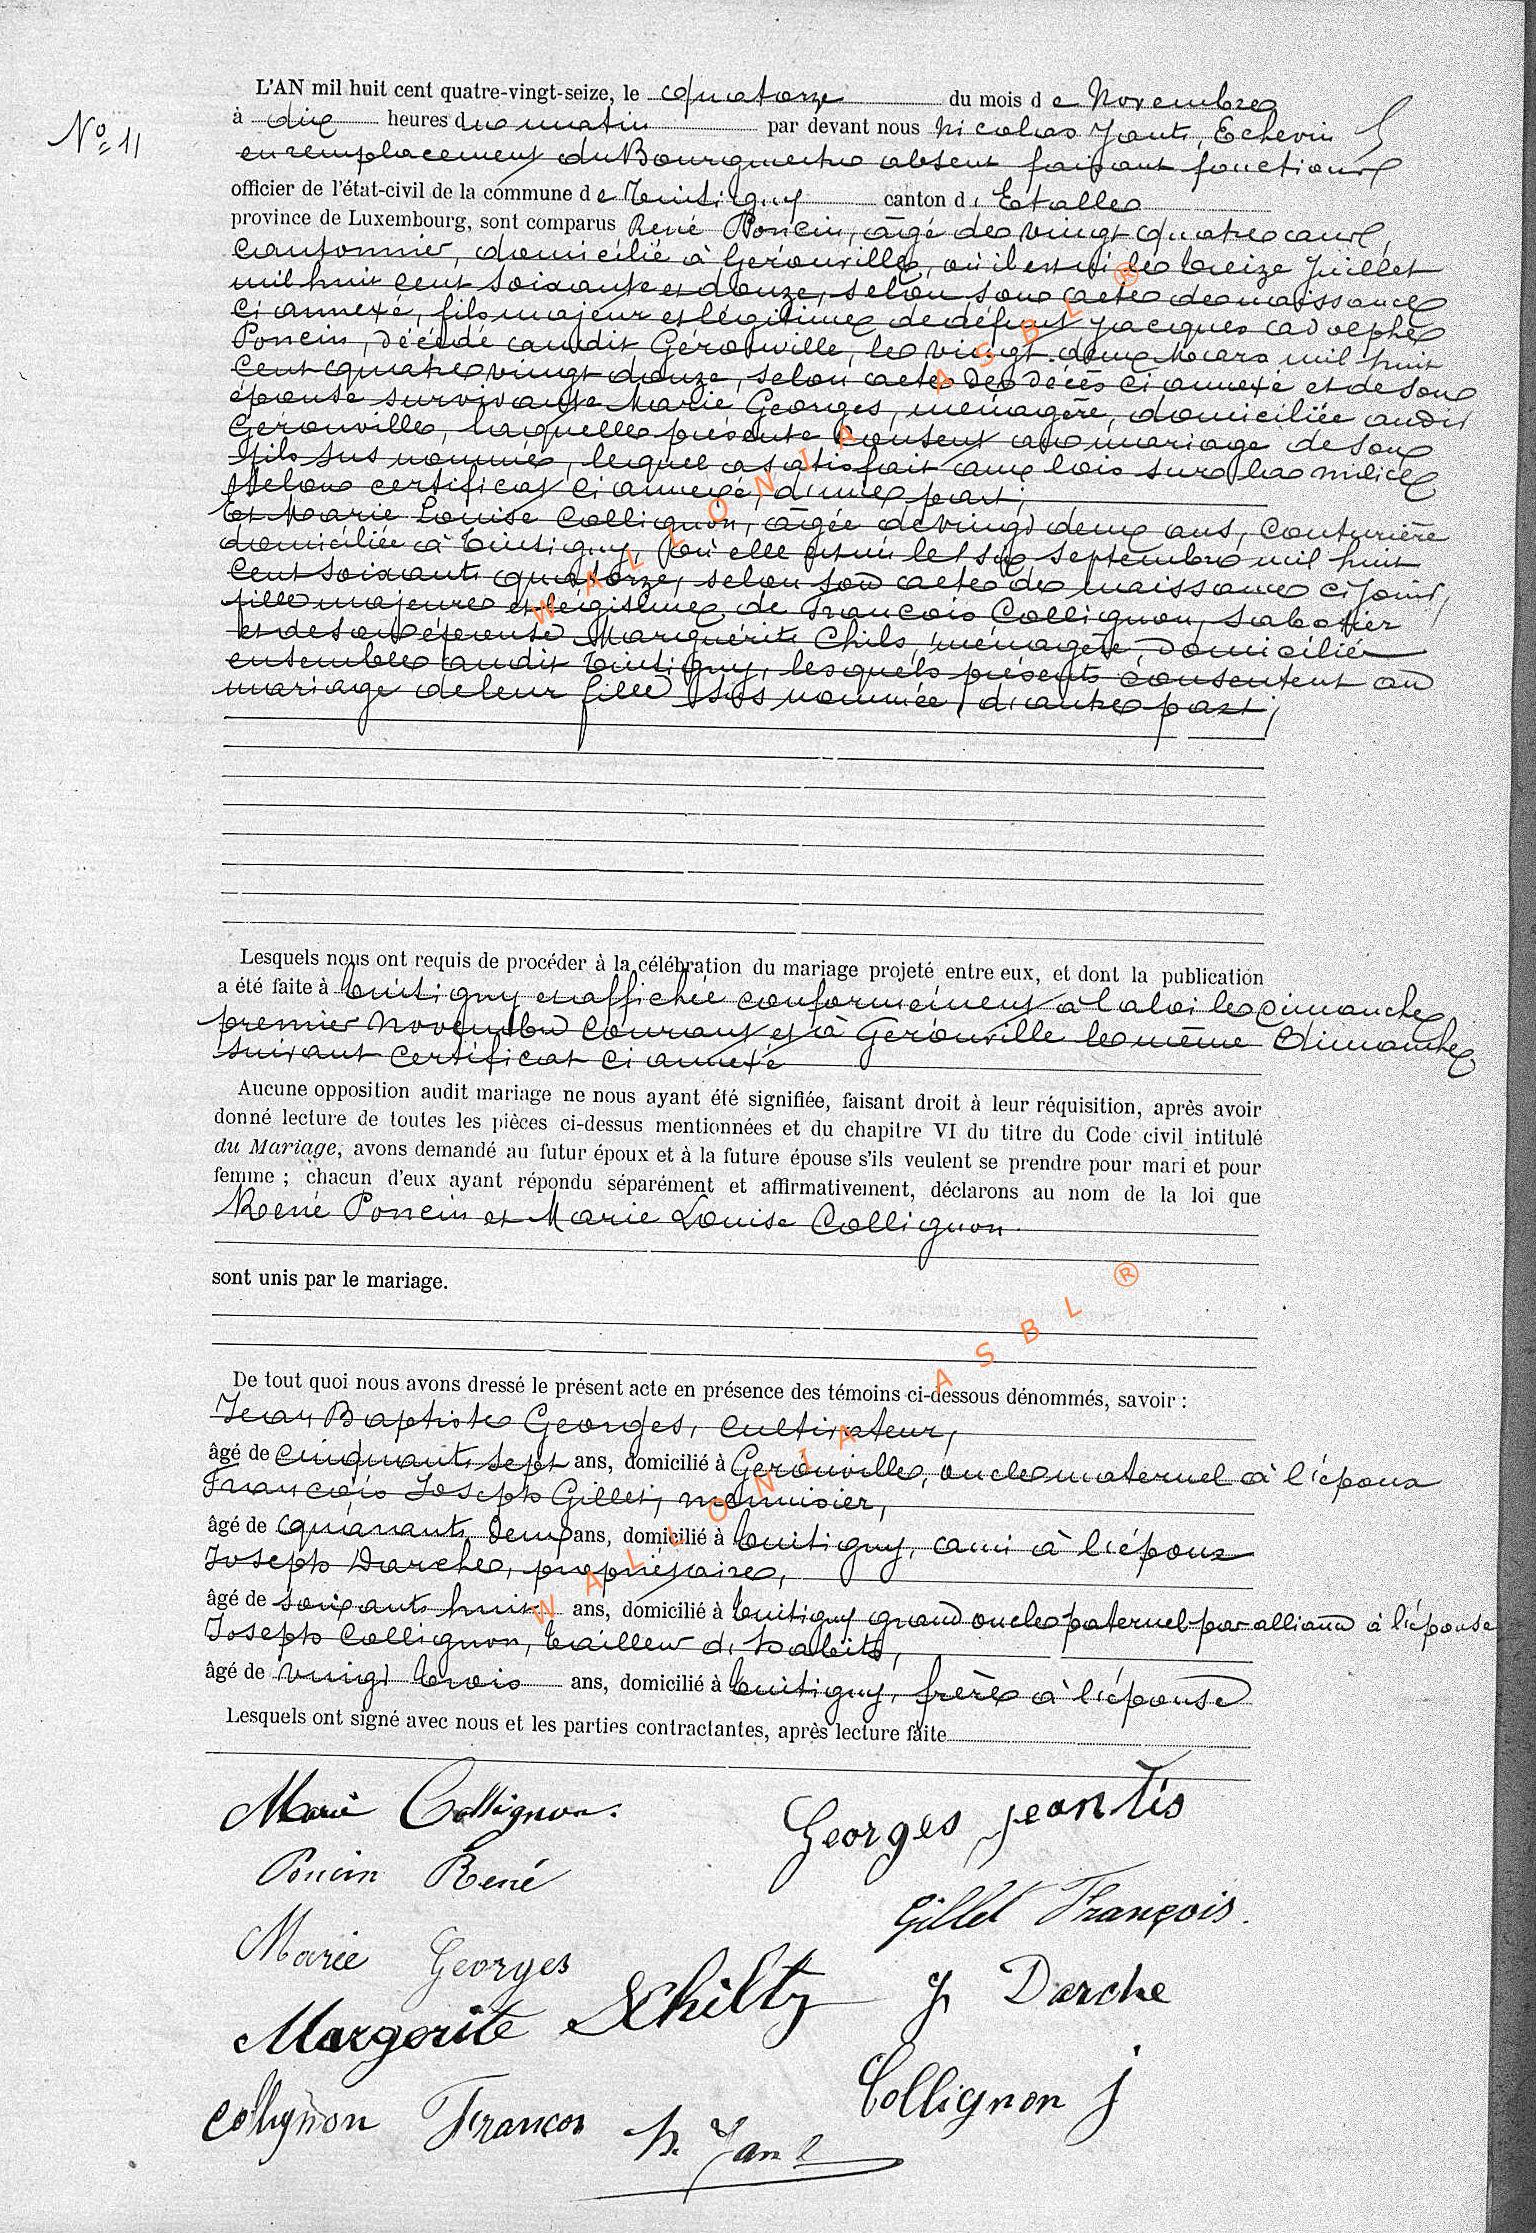 N° 11
L'AN mil huit cent quatre-vingt-seize, le quatorze du mois de Novembre
à dix heures du matin par devant nous Nicolas Jantz, Echevin
en remplacement du Bourgmestre absent faisant fonctions
officier de l'état-civil de la commune de Tintigny canton d' Etalle
province de Luxembourg, sont comparus René Poncin, âgé de vingt quatre ans,
cantonnier, domicilié à Gérouville, où il est né le treize Juillet
mil huit cent soixante et douze, selon son acte de naissance
ci annexé, fils majeur et légitime de défunt Jacques Adolphe
Poncin, décédé audit Gérouville, le vingt deux Mars mil huit
cent quatre vingt douze, selon acte de décès ci annexé et de son
épouse survivante Marie Georges, ménagère, domiciliée audit
Gérouville, laquelle présente consent au mariage de son
fils sus nommé, lequel a satisfait aux lois sur la milice
selon certificat ci annexé, d'une part;
Et Marie Louise Collignon, âgée de vingt deux ans, couturière
domiciliée à Tintigny, où elle est née le six septembre mil huit
cent soixante quatorze, selon son acte de naissance ci joint,
fille majeure et légitime de François Collignon, sabotier
et de son épouse Marguérite Chils, ménagère, domiciliés
ensemble audit Tintigny, lesquels présents consentent au
mariage de leur fille sus nommée, d'autre part;
Lesquels nous ont requis de procéder à la célébration du mariage projeté entre eux, et dont la publication
a été faite à Tintigny et affichée conformément à la loi le dimanche
premier Novembre courant et à Gérouville le même Dimanche
suivant certificat ci annexé
Aucune opposition audit mariage ne nous ayant été signifiée, faisant droit à leur réquisition, après avoir
donné lecture de toutes les pièces ci-dessus mentionnées et du chapitre VI du titre du Code civil intitulé
du Mariage, avons demandé au futur époux et à la future épouse s'ils veulent se prendre pour mari et pour
femme ; chacun d'eux ayant répondu séparément et affirmativement, déclarons au nom de la loi que
René Poncin et Marie Louise Collignon
sont unis par le mariage.
De tout quoi nous avons dressé le présent acte en présence des témoins ci-dessous dénommés, savoir :
Jean Baptiste Georges, cultivateur,
âgé de cinquante sept ans, domicilié à Gérouville, oncle maternel à l'époux
François Joseph Gillet, menuisier,
âgé de quarante deux ans, domicilié à Tintigny, ami à l'époux
Joseph Darche, propriétaire,
âgé de soixante huit ans, domicilié à Tintigny grand oncle paternel par alliance à l'épouse
Joseph Collignon, tailleur d'habits,
âgé de vingt trois ans, domicilié à Tintigny, frère à l'épouse
Lesquels ont signé avec nous et les parties contractantes, après lecture faite
Marie Collignon. Georges jeantis
Poncin René
Gillet François.
Marie Georges
Margerite Schiltz J Darche
Collignon J
Collignon Francois
N. Jantz
WALLONIA ASBL ®
WALLONIA ASBL ®